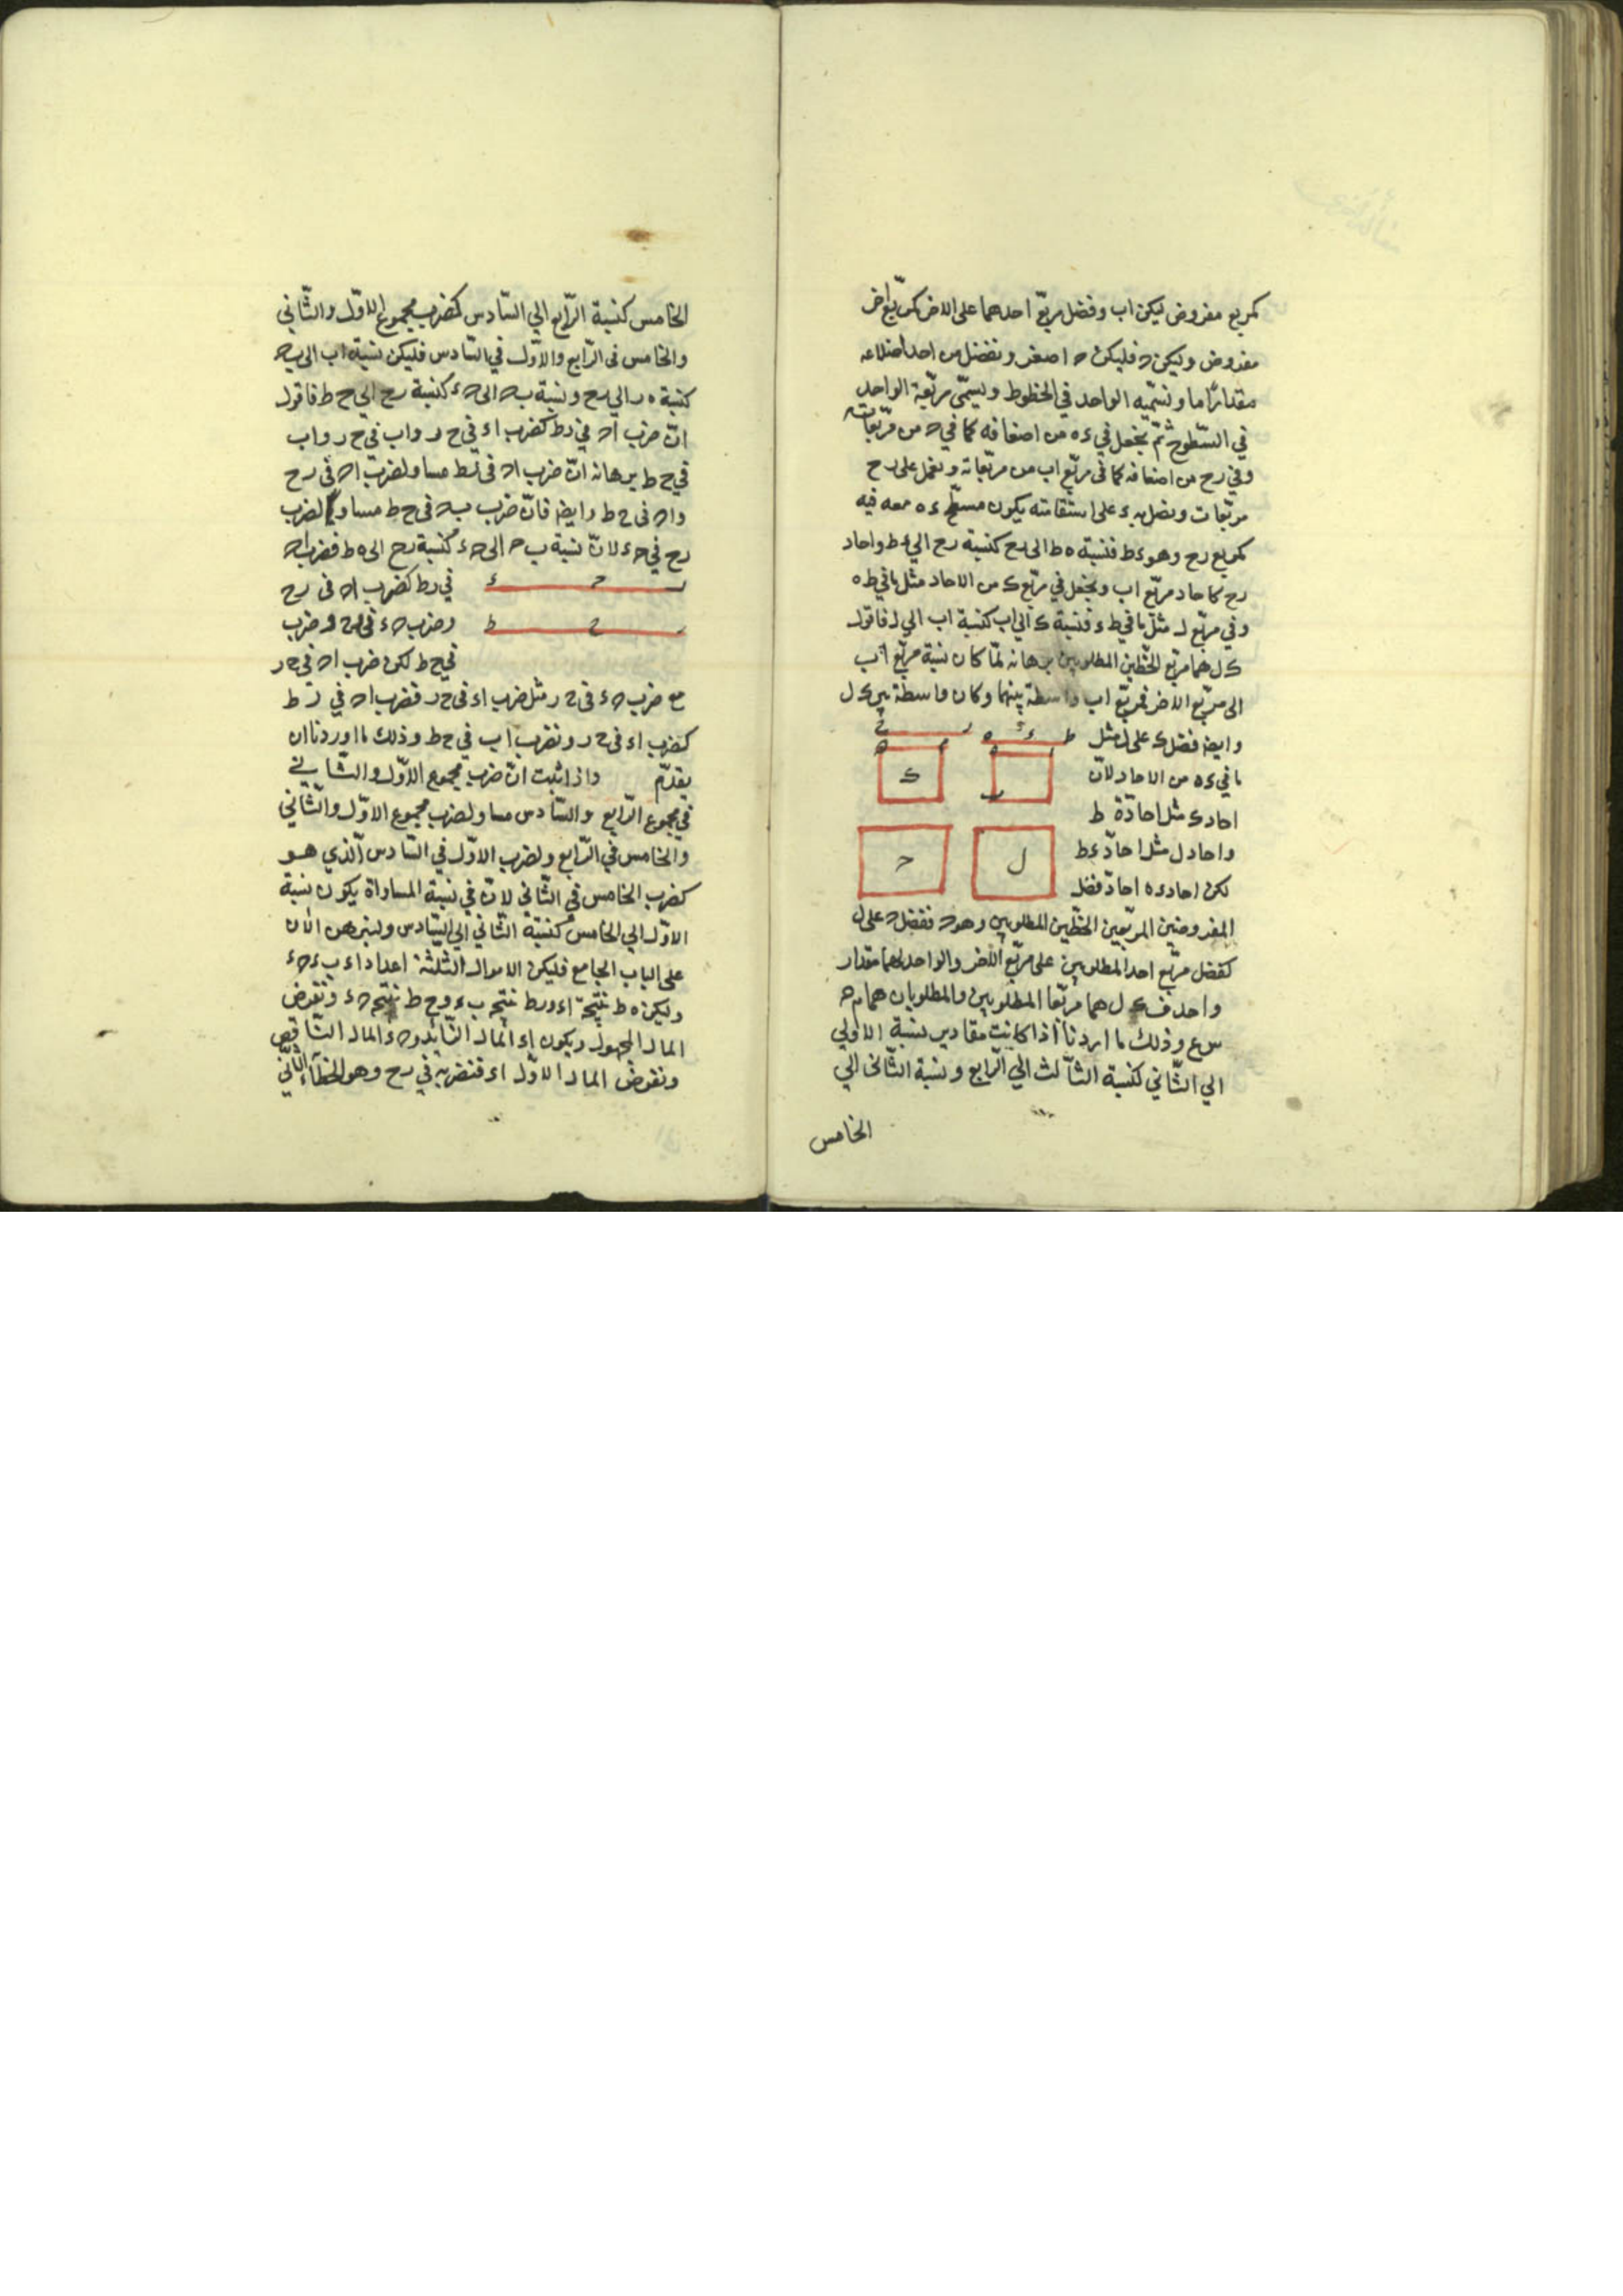 كمربع مفروض ليكن اب وفضل مربّع احدهما على الاخر كمربّع اخر
مفروض وليكن ح فليكن ح اصغر ونفضل من احد اضلاعه
مقدارًا ما ونسمّيه الواحد في الخطوط ويسمّى مربّعة الواحد
في السّطوح ثمّ نجعل في ءه من اضعافه كما في ح من مربّعات
وفي رح من اضعافه كما فى مربّع اب من مربّعاته ونعمل على رح
مربّعات ونصل به ء على استقامته يكون مسطّح ءه معه فيه
كمربع رح وهو ءط فنسبة ه ط الى رح كنسبة رح الي ءط واحاد
رح كاحاد مربّع اب ونجعل في مربّع ک من الاحاد مثل ما في طه
وفي مربّع ل مثل ما في طء فنسبة ک الي اب كنسبة اب الي ل فاقول
ک ل هما مربّع الخطّين المطلوبين برهانه لمّا كان نسبة مربّع اب
الى مربّع الاخر فمربّع اب واسطة بينهما وكان واسطة بين ک ل
وايضا فضل ک على ل مثل
ما في ءه من الاحاد لانّ
احاد ک مثل احاد ة ط
واحاد ل مثل احاد ءط
لكن احاد ءه احاد فضل
المفروضين المربّعين الخطّين المطلوبين وهو ح ففضل ک على ل
كفضل مربّع احد المطلوبين على مربّع الاخر والواحد لهما مقدار
واحد ف ک ل هما مربّعا المطلوبين والمطلوبان هما م ح
س ع وذلك ما اردنا اذا كانت مقادير نسبة الاولي
الي الثّاني كنسبة الثّالث الي الرّابع ونسبة الثّاني الي
الخامس
الخامس كنسبة الرّابع الي السّادس كضرب مجموع الاوّل والثّاني
والخامس فى الرّابع والاوّل في السّادس فليكن نسبة اب الى بح
كنسبة ه ر الي رح ونسبة بح الى حء كنسبة رح الي ح ط فاقول
انّ ضرب اح في رط كضرب اء في ح ر واب في ح ر واب
في ح ط برهانه انّ ضرب اح فى رط مساو لضرب اح فى رح
واح فى ح ط وايضا فانّ ضرب بح فى ح ط مساو لضرب
رح في حء لانّ نسبة ب ح الى حء كنسبة رح الى ه ط فضرب اح
في رط كضرب اح فى رح
وضرب حء فى رح وضرب
في ح ط لكن ضرب اح فى ح ر
مع ضرب حء فى ح ر مثل ضرب اء فى ح ر فضرب اح في ر ط
كضرب اء فى ح ر ونضرب اب في ح ط وذلك ما اوردنا ان
يقدّم واذا ثبت انّ ضرب مجموع الاوّل والثّاني
في مجموع الرّابع والسّادس مساو لضرب مجموع الاوّل والثّاني
والخامس في الرّابع ولضرب الاوّل في السّادس الّذي هو
كضرب الخامس في الثّاني لانّ في نسبة المساواة يكون نسبة
الاوّل الي الخامس كنسبة الثّاني الي السّادس ولنبرهن الان
على الباب الجامع فليكن الاموال الثّلثة اعداد اء بء حء
وليكن ه ط نتيجة اء ورط نتيجة بء وح ط نتيجة حء ونفرض
المال المجهول ويكون اء المال الزّايد وحء المال النّاقص
ونفرض المال الاوّل اء فنضربه في رح وهو الخطأ الثّاني